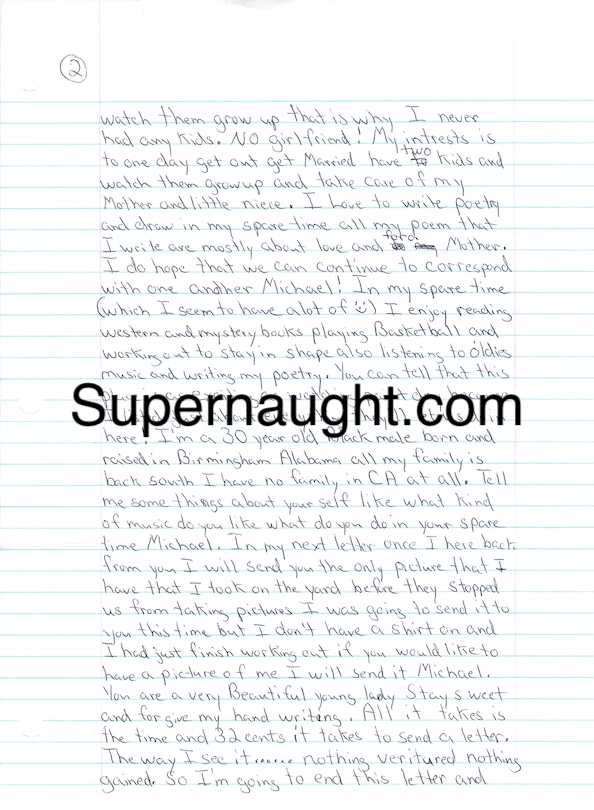 2
watch them grow up that is why I never
had any kids. NO girlfriend! My intrests is
to one day get out get Married have two kids and
watch them growup and take care of my
Mother and little niece. I Love to write poetry
and draw in my spare time all my poem that
I write are mostly about love and Mother.
I do hope that we can continue to correspond
with one another Michael! In my spare time
(which I seem to have alot of ☺) I enjoy reading
western and mystery books playing Basketball and
working out to stay in shape also listening to oldies
music and writing my poetry. You can tell that this
Supernaught.com
here. I'm a 30 year old Black male born and
raised in Birmingham Alabama all my family is
back south I have no family in CA at all. Tell
me some things about your self like what kind
of music do you like what do you do in your spare
time Michael. In my next letter once I here back
from you I will send you the only picture that I
have that I took on the yard before they stopped
us from taking pictures I was going to send it to
you this time but I don't have a shirt on and
I had just finish working out if you would like to
have a picture of me I will send it Michael.
You are a very Beautiful young lady Stay sweet
and forgive my hand writeng. All it takes is
the time and 32 cents it takes to send a letter.
The way I see it...... nothing veritured nothing
gained. So I'm going to end this letter and